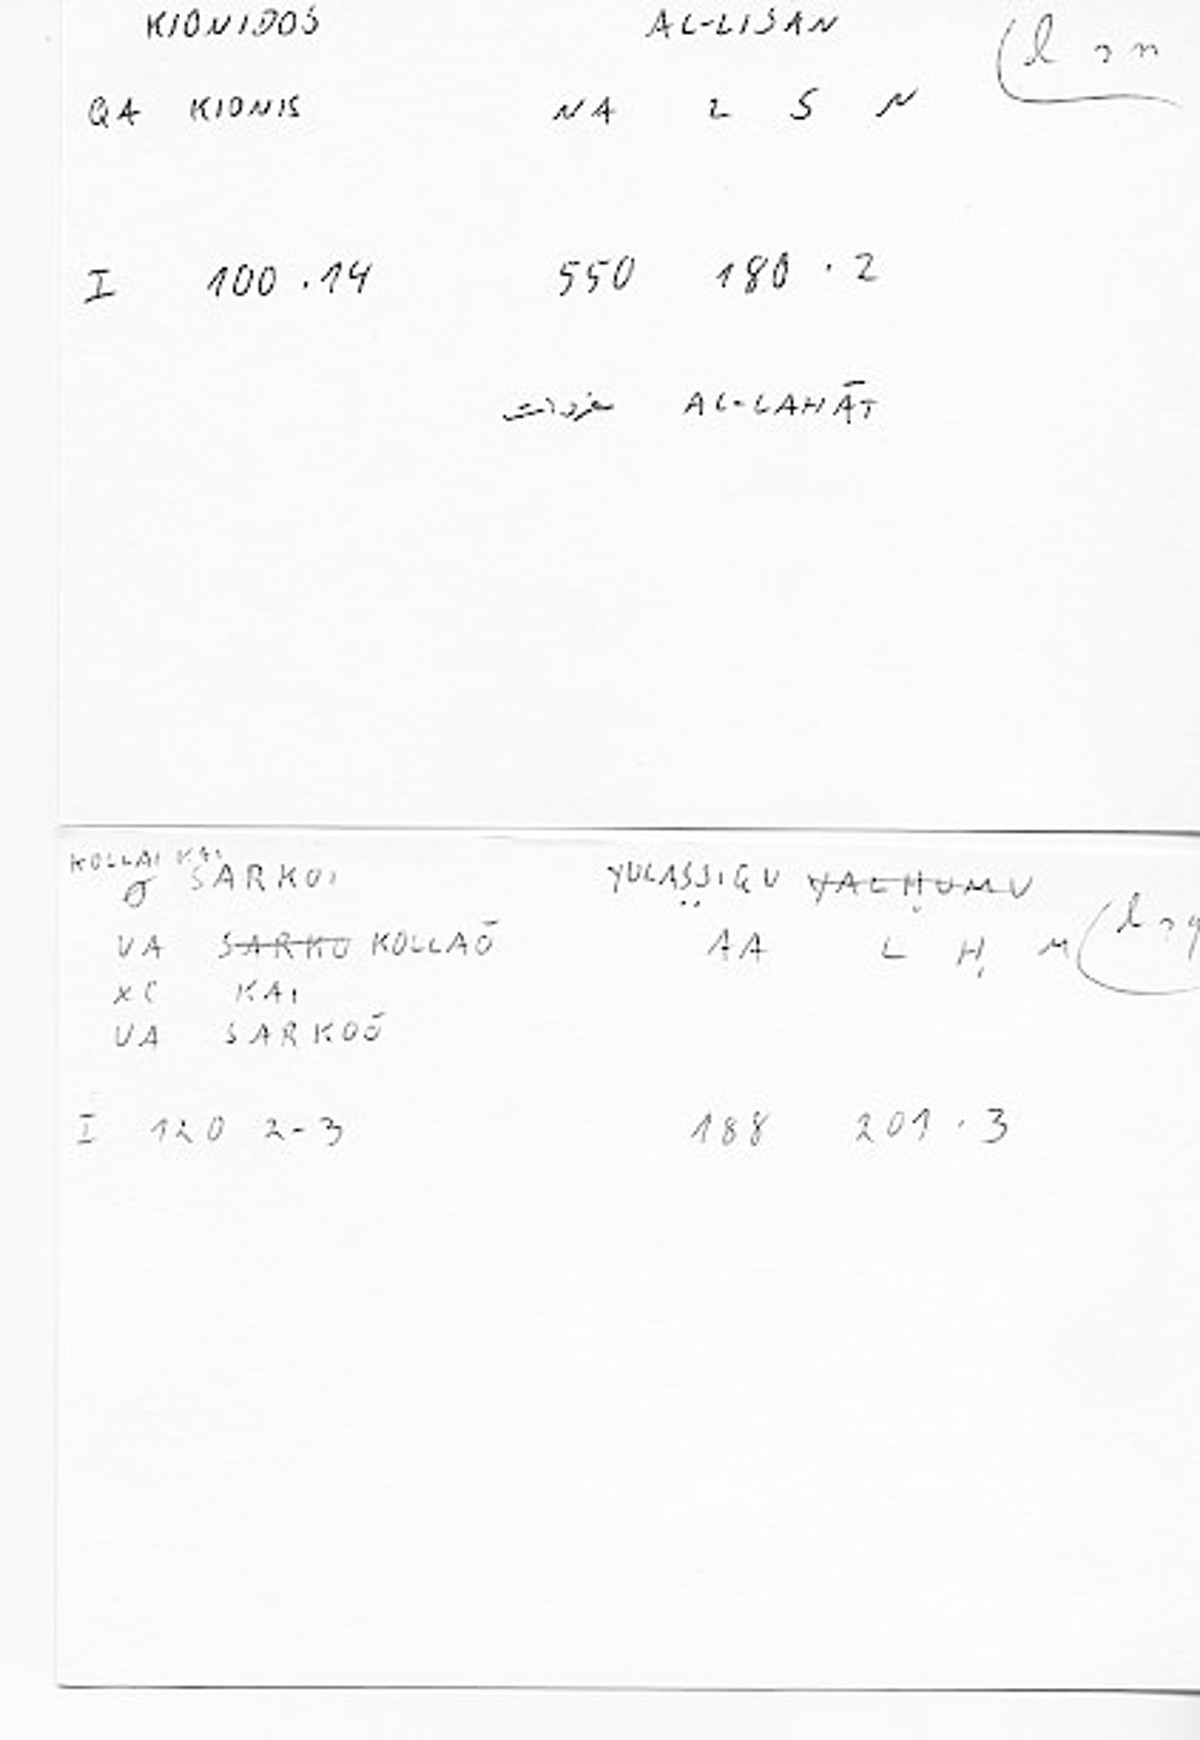 KIONIDOS AL-LISAN
QA KIONIS NA L S N
I 100 .14 550 180 . 2
AL-LAHĀT
KOLLAI KAI
SARKOI YULAṢṢIQU YALḤUMU
VA SARKO KOLLAŌ AA L Ḥ M
XC KAI
VA SARKOŌ
I 120 2-3 188 201 . 3